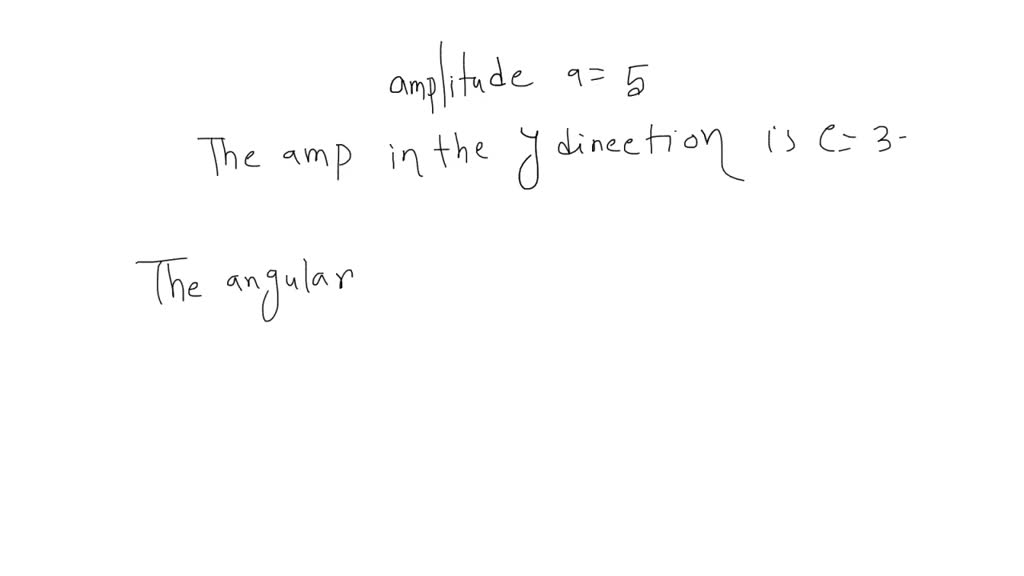 amplitude a = 5
The amp in the y dineetion is c = 3-
The angular